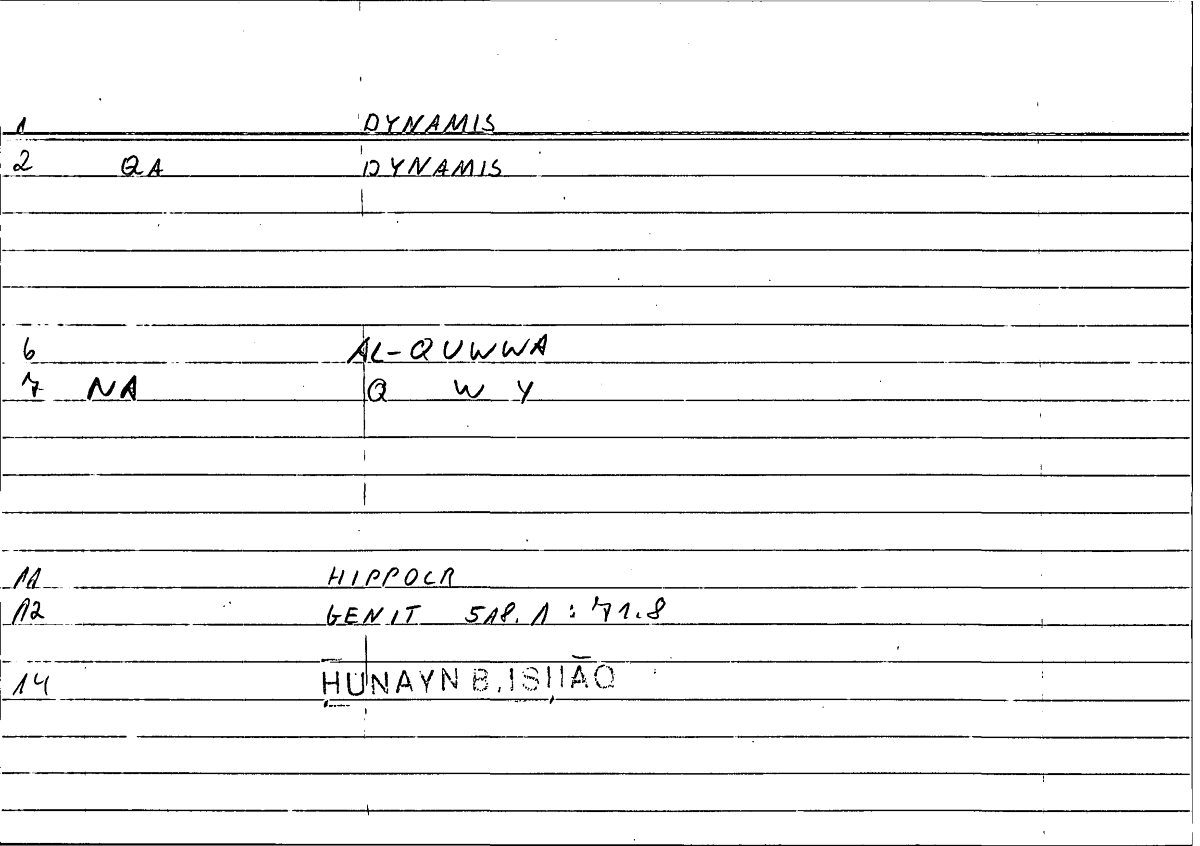 1 DYNAMIS
2 QA DYNAMIS
6 AL-QUWWA
7 NA Q W Y
11 HIPPOCR
12 GENIT 518.1 : 71.8
14 ḤUNAYN B. ISḤĀQ